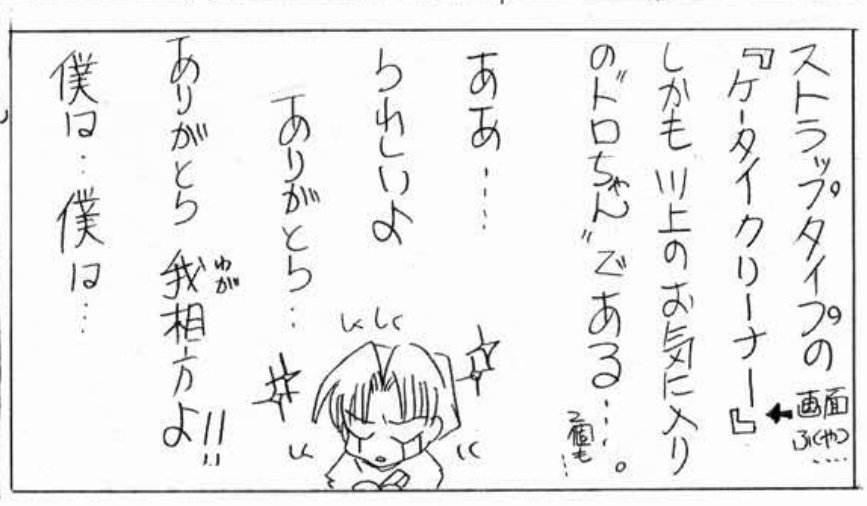 ストラップタイプの
『ケータイクリーナー』
←画面ふくやつ‥‥
しかも川上のお気に入り
の"ドロちゃん"である‥‥。
2個も…
ああ‥‥
うれしいよ
ありがとう‥
ありがとう 我相方よ!!
わが
僕は‥僕は‥